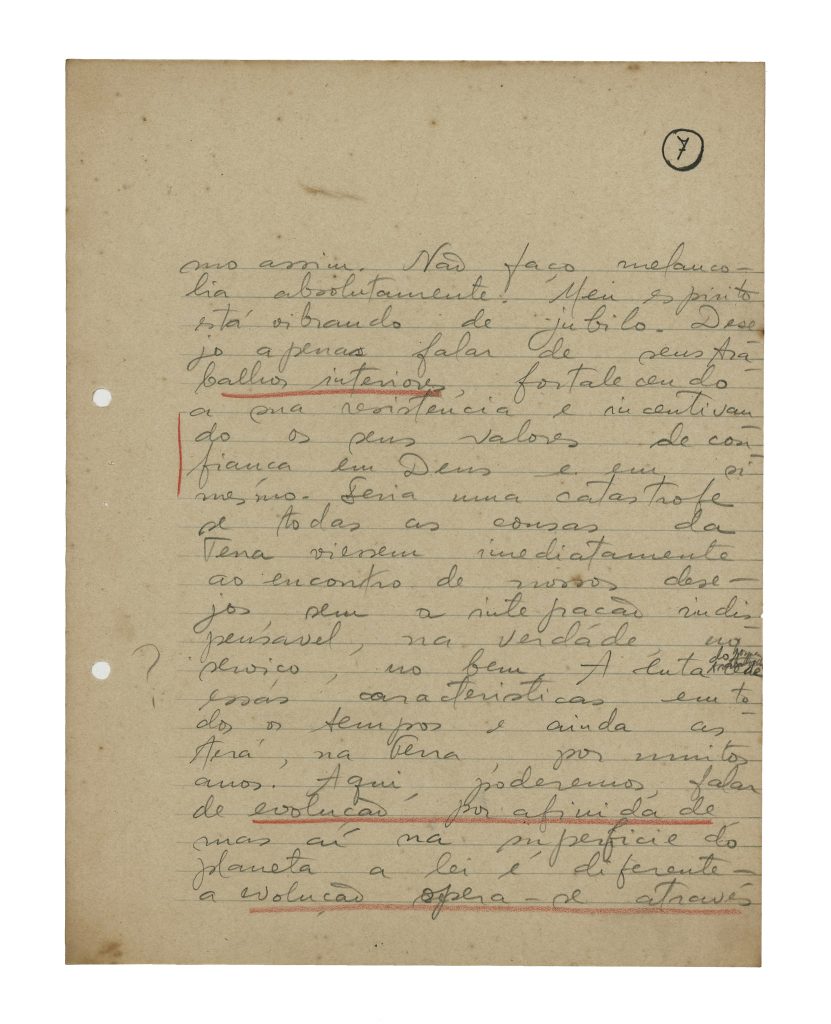 7
mo assim. Não faço melanco-
lia absolutamente. Meu espirito
está vibrando de jubilo. Dese-
jo apenas falar de seus tra-
balhos interiores, fortalecendo
a sua resistência e incentivan-
do os seus valores de con-
fianca em Deus e em si
mesmo. Seria uma catastrofe
se todas as cousas da
Terra viessem imediatamente
ao encontro de nossos dese-
jos sem a integracão indis-
pensavel, na verdade, no
servico, no bem. A luta
do homem
essas caracteristicas em to-
dos os tempos e ainda as
terá, na Terra, por muitos
anos. Aqui, poderemos falar
de evolucão por afinidade
mas aí na superficie do
planeta a lei é diferente-
a evolução opera-se através
?